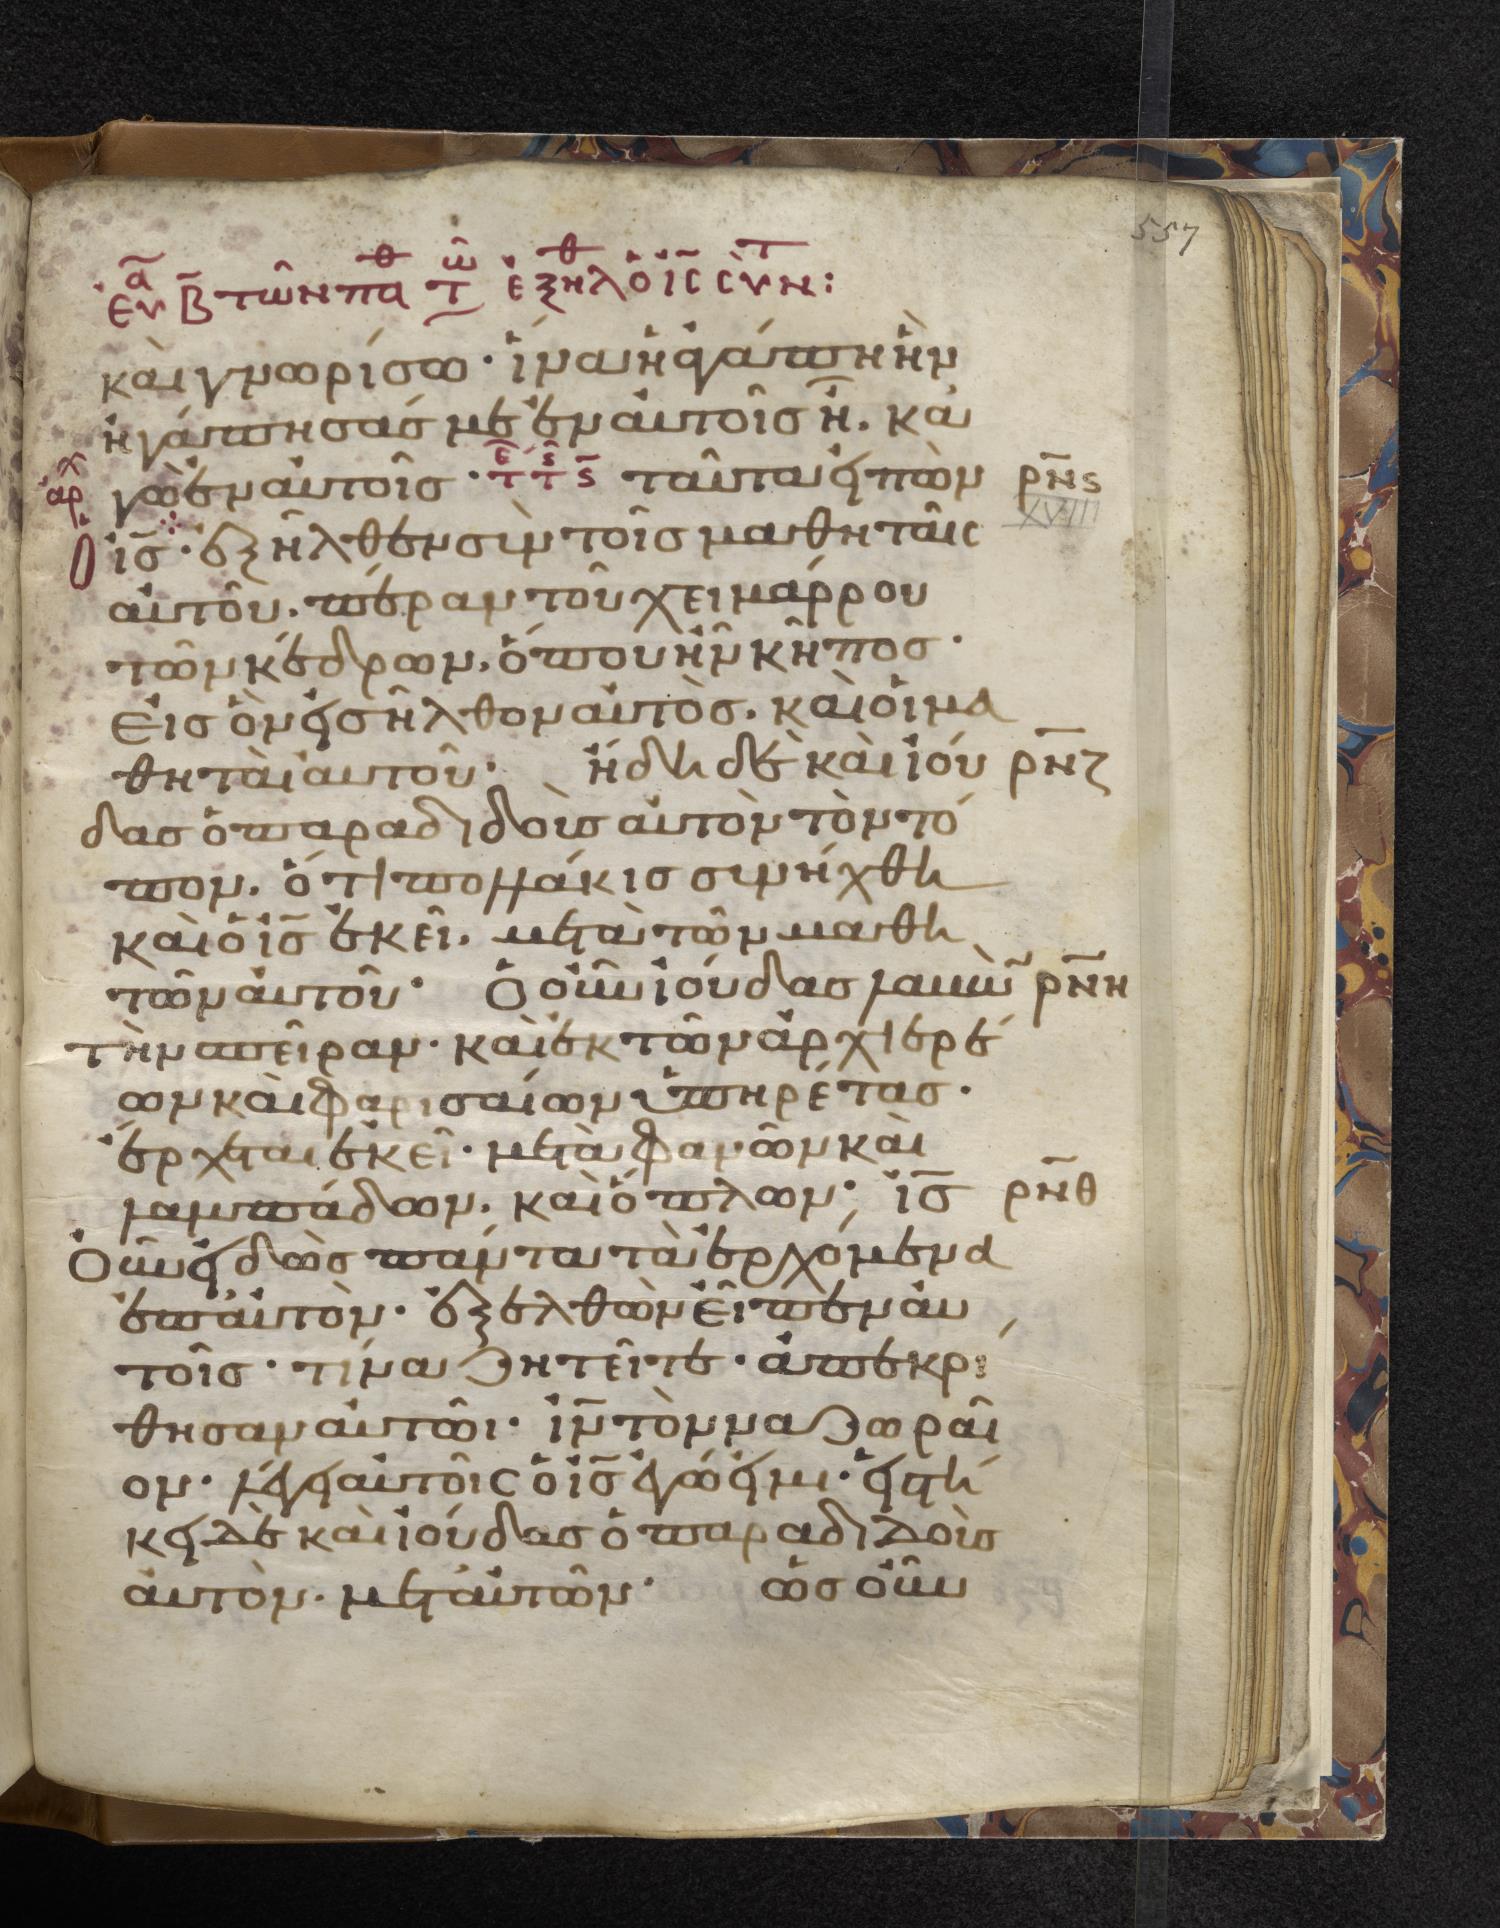 557
εὐα Β τῶν παθ τῶ ἐξῆλθ ὁ ις σὺν τ:
καὶ γνωρίσω· ἵνα ἡ ἀγάπη ἣν
ἠγάπησάς με ἐν αὐτοῖς ῆ. κα
γὼ ἐν αὐτοῖς· ταῦτα εἰπὼν ρνς
XVIII
αρχ
ὁ ις· ἐξῆλθεν σὺν τοῖς μαθηταῖς
αὐτοῦ. πέραν τοῦ χειμάρρου
τῶν κέδρων. ὅπου ἦν κῆπος·
εἰς ὃν εἰσῆλθον αὐτὸς. καὶ οἱ μα
θηταὶ αὐτοῦ· ἤδη δὲ καὶ ἰού ρνζ
δας ὁ παραδιδοὺς αὐτὸν τὸν τό
πον. ὅτι πολλάκις συνήχθη
καὶ ὁ ις ἐκεῖ. μετὰ τῶν μαθη
τῶν αὐτοῦ· Ὁ οὖν ἰούδας λαβὼν ρνη
τὴν πεῖραν· καὶ ἐκ τῶν ἀρχιερέ
ων καὶ φαρισαίων ὑπηρέτας·
ἔρχεται ἐκεῖ· μετὰ φανῶν καὶ
λαμπάδων. καὶ ὅπλων· ις ρνθ
Οὖν εἰδὼς πάντα τὰ ἐρχόμενα
ἐπ αὐτὸν· ἐξελθὼν εἶπεν αὐ
τοῖς· τίνα ζητεῖτε· ἀπεκρί
θησαν αὐτῶι· ιν τὸν ναζωραῖ
ον· λέγει αὐτοῖς ὁ ις ἐγώ εἰμι· εἱστή
κει δὲ καὶ ἰούδας ὁ παραδιδοὺς
αὐτὸν· μετ αὐτῶν· ὡς οὖν